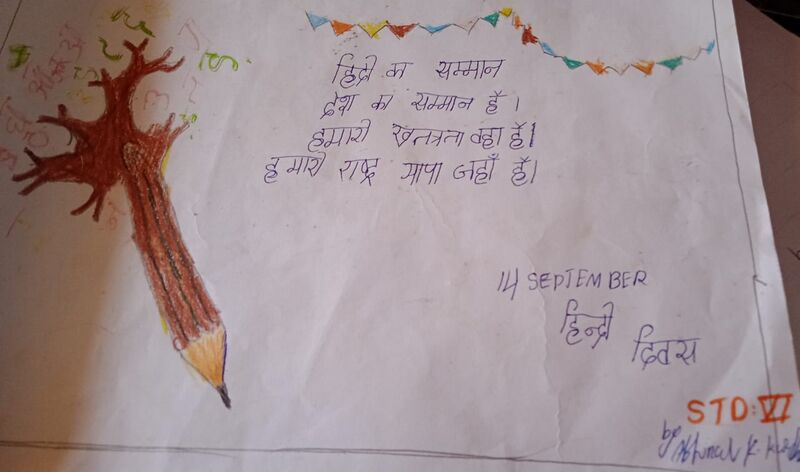 हिंदी का सम्मान
देश का सम्मान है ।
हमारी स्वतंत्रता वहा है।
हमारी राष्ट्र भाषा जहाँ है।
14 SEPTEMBER
हिन्दी
दिवस
STD: VI
by